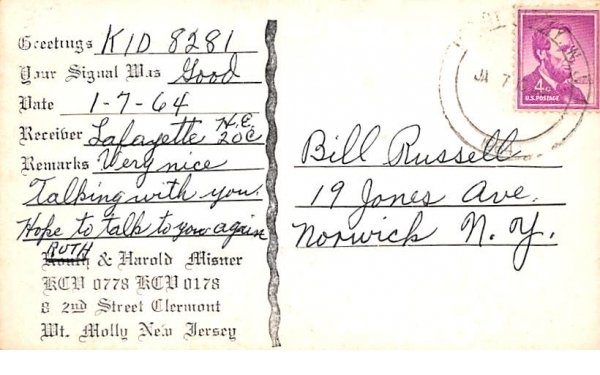 Greetings KID 8281
Your Signal Was Good
Date 1-7-64
Receiver Lafayette H.E. 20C
Remarks Very nice
Talking with you.
Hope to talk to you again
RUTH
& Harold Misner
KCV 0778 KCV 0178
8 2nd Street Clermont
Mt. Molly New Jersey
JA 7
4¢
U.S. POSTAGE
Bill Russell
19 Jones Ave.
Norwick N.Y.